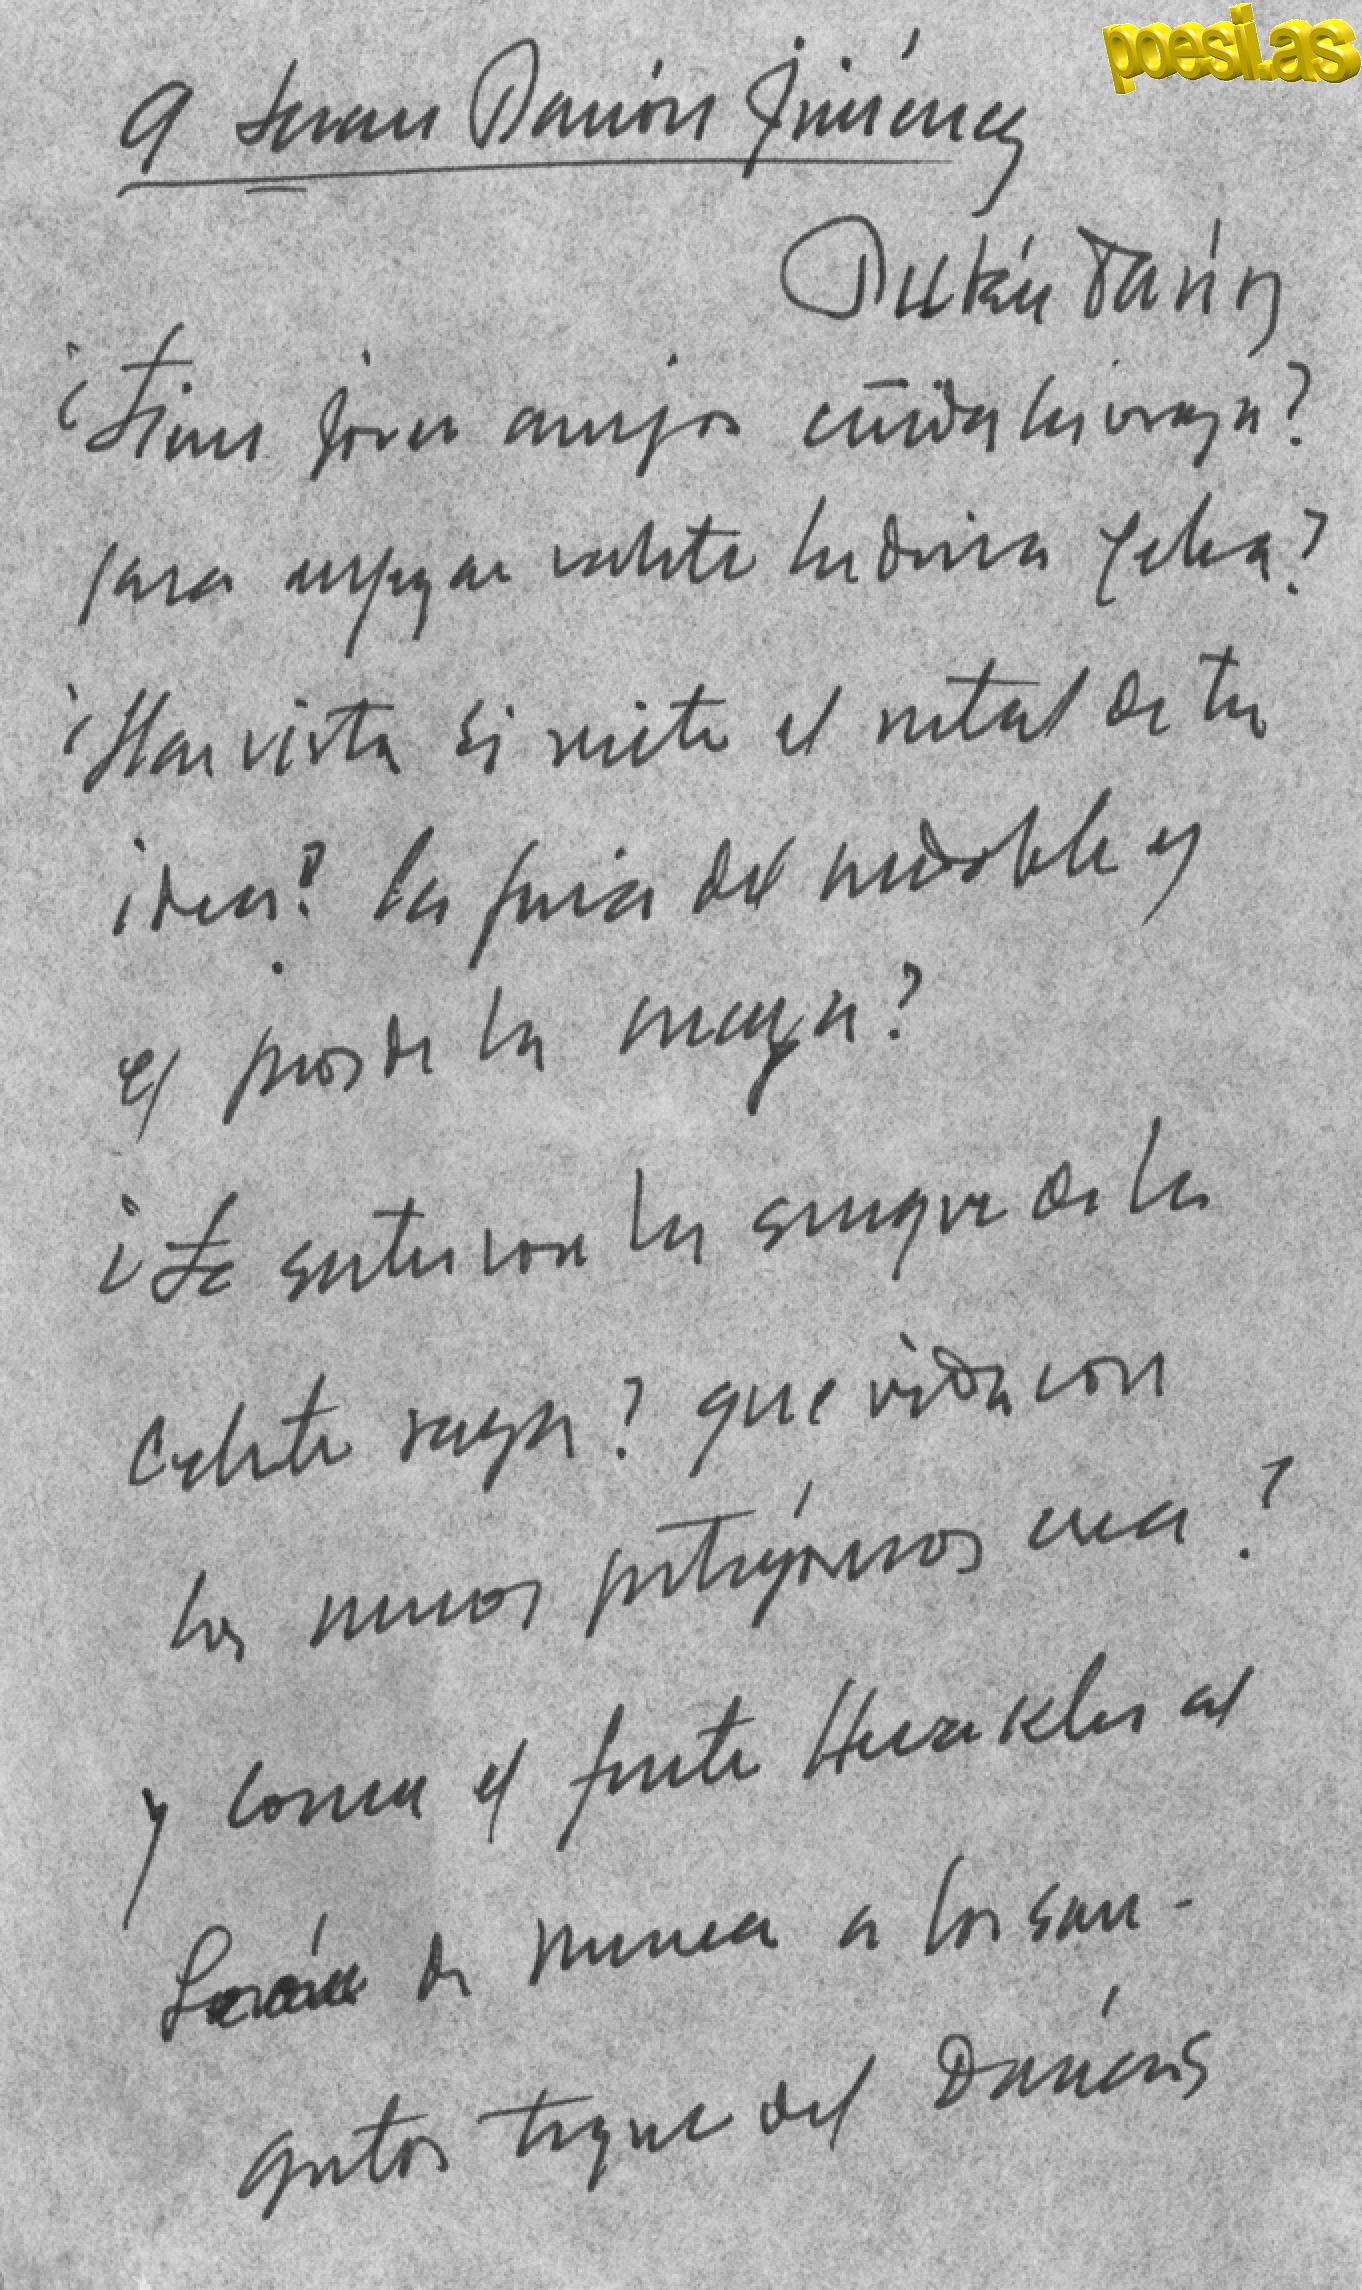 poesi.as
A Juan Ramón Jiménez
Rubén Darío
¿Tienes joven amigo ceñida la coraza?
para empezar valiente la divina pelea?
¿Has visto si resiste el metal de tu
idea? la furia del mandoble y
el peso de la maza?
¿Te sientes con la sangre de la
celeste raza? que vida con
los números pitagóricos crea?
y como el fuerte Herakles al
León de Nemea a los san-
grientos tigres del